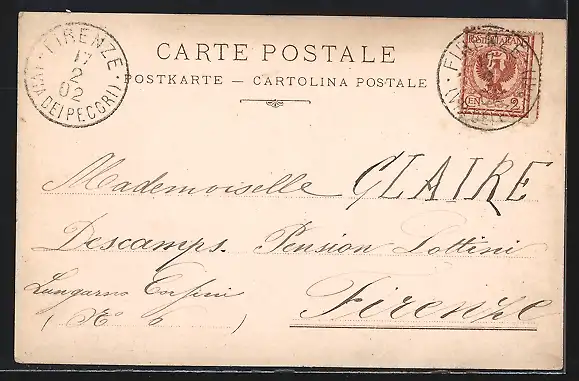 FIRENZE
17
2
02
(VIA DEI PECORI)
CARTE POSTALE
POSTKARTE — CARTOLINA POSTALE
POSTE ITALIANE
CEN. 2
Mademoiselle CLAIRE
Descamps. Pension Pottini
Lungarno Corsini Firenze
( No 6 )